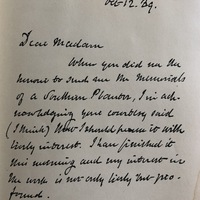 Oct 12. '89.
Dear Madam
When you did me the
honour to send me the Memorials
of a Southern Planter, I in ack-
nowledging your courtesy said
(I think) that I should peruse it with
lively interest. I have finished it
this morning and my interest in
the work is not only lively but pro-
found.